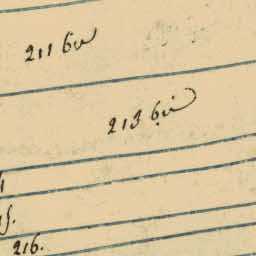 211 bis
213 bis
216.